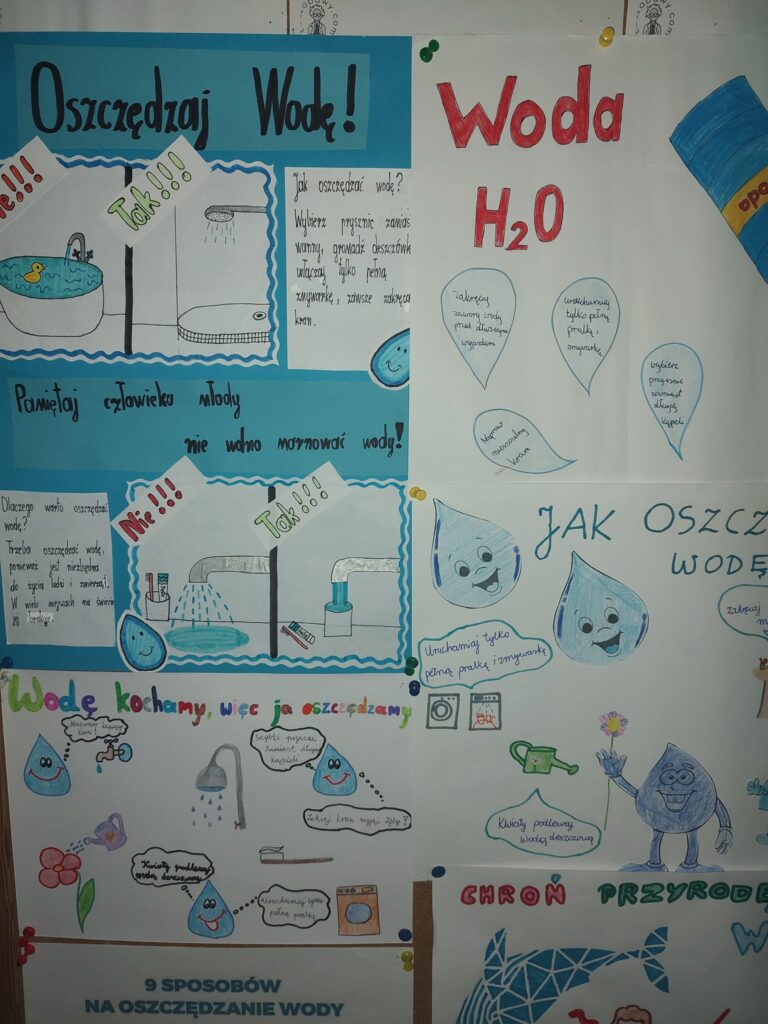 Oszczędzaj Wodę!
Tak!!!
Jak oszczędzać wodę?
Wybierz prysznic zamias
wanny, gromadź deszczówk
włączaj tylko pełną
zmywarkę, zawsze zakręca
kran.
Pamiętaj człowieku młody
nie wolno marnować wody!
Dlaczego warto oszczędzać
wodę?
Trzeba oszczędzać wodę,
ponieważ jest niezbędna
do życia ludzi i zwierząt.
W wielu miejscach na świecie
jej brakuje.
Nie!!!
Tak!!!
Woda
H2O
Zakręcaj
zawory wody
przed dłuższym
wyjazdem
Uruchamiaj
tylko pełną
pralkę i
zmywarkę
wybierz
prysznic
zamiast
długiej
kąpieli
Napraw
nieszczelny
kran
JAK OSZCZ
WODĘ
zakręcaj
Uruchamiaj tylko
pełną pralkę i zmywarkę
Kwiaty podlewaj
wodą deszczową
Wodę kochamy, więc ją oszczędzamy
Napraw
kran!
Szybki prysznic
zamiast długiej
kąpieli
Zakręć kran myjąc zęby!
Kwiaty podlewaj
wodą deszczową
Uruchamiaj tylko
pełną pralkę
9 SPOSOBÓW
NA OSZCZĘDZANIE WODY
CHROŃ PRZYRODĘ
W